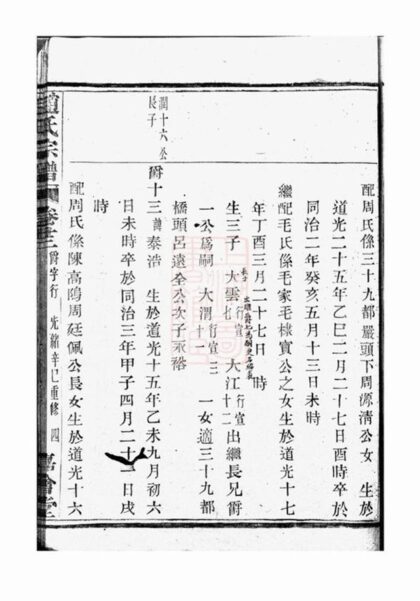 配周氏係三十九都巖頭下周源清公女 生於
道光二十五年乙巳二月二十七日酉時卒於
同治二年癸亥五月十三日未時
繼配毛氏係毛家毛棣賓公之女生於道光十七
年丁酉三月二十七日 時
生三子 大雲 行宣 大江 行宣 出繼長兄爵
一公為嗣 大渭 行宣 一女適三十九都
橋頭呂遠全公次子永裕
潤十六公
長子
爵十三 諱泰浩 生於道光十五年乙未九月初六
日未時卒於同治三年甲子四月二十一日戌
時
配周氏係陳高鴿周廷佩公長女生於道光十六
趙氏宗譜 卷十三 爵字行 光緒辛巳重修 四 萬會堂